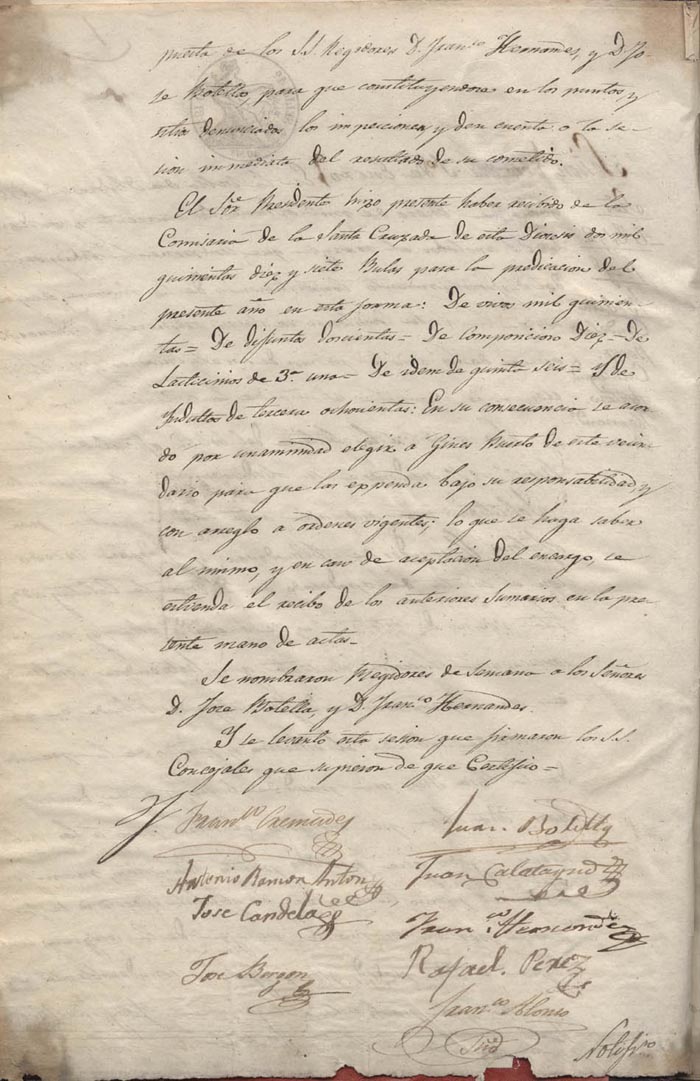 puesta de los S.S. Regidores D. Fran.co Hernandes, y D. Jo-
se Botella, para que constituyendose en los puntos, y
sitios denunciados los inspeccionen y den cuenta a la se-
sion immediata del resultado de su cometido.
El Sõr Presidente hizo presente haber recibido de la
Comisaria de la Santa Cruzada de esta Diocesis dos mil
quinientas diez y siete Bulas para la predicacion del
presente año en esta forma: De vivos mil quinien-
tas = De difuntos doscientas = De composicion Diez = De
Lacticinios de 3.a una = De idem de quinta seis = Y de
Yndultos de tercera ochocientas: En su consecuencia se acor-
dó por unanimidad elegir a Gines Puerto de este vecin-
dario para que las expenda bajo su responsabilidad, y
con arreglo a ordenes vigentes; lo que se haga saber
al mismo, y en caso de aceptacion del encargo, se
estienda el recibo de los anteriores Sumarios en la pre-
sente mano de actas =
Se nombraron Regidores de Semana a los Señores
D. Jose Botella, y D. Fran.co Hernandes.
Y se levantó esta sesion que firmaron los S.S.
Concejales que supieron de que Certifico =
Fran.co Cremades
Juan Botella
Antonio Ramon Anton
Juan Calatayud
Jose Candela
Fran.co Hernandez
Rafael Perez
Jose
Fran.co Alonso
Srio